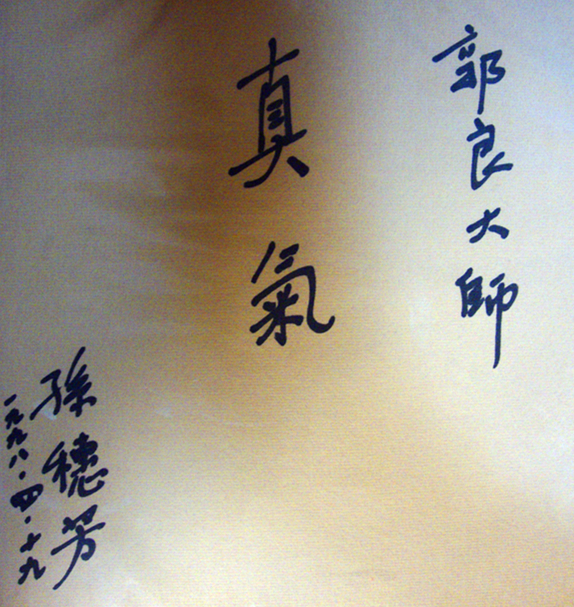 郭良大師
真氣
孫穗芳
一九九八·四·十九